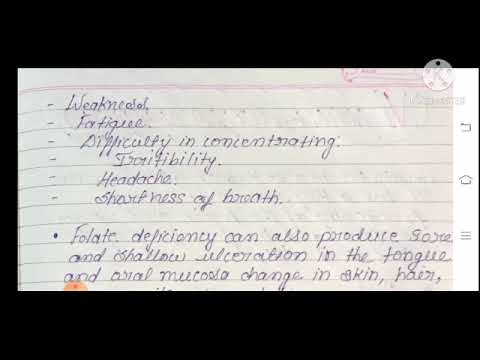 - Weakness.
- Fatigue.
- Difficulty in concentrating.
- Irritibility.
- Headache.
- Shortness of breath.
• Folate deficiency can also produce sore
and shallow ulceration in the tongue
and oral mucosa change in skin, hair,